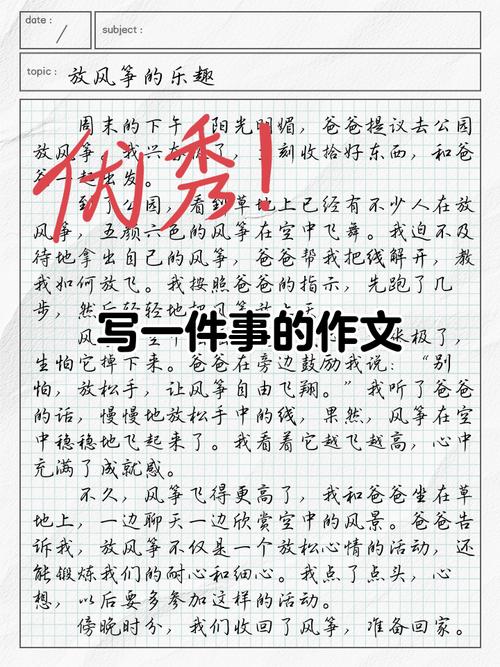 date :
subject :
topic : 放风筝的乐趣
周末的下午,阳光明媚,爸爸提议去公园
放风筝。我兴奋极了,立刻收拾好东西,和爸
爸一起出发。
优秀!
到了公园,看到草地上已经有不少人在放
风筝,五颜六色的风筝在空中飞舞。我迫不及
待地拿出自己的风筝,爸爸帮我把线解开,教
我如何放飞。我按照爸爸的指示,先跑了几
步,然后轻轻地把风筝放上天
写一件事的作文
风 张极了,
生怕它掉下来。爸爸在旁边鼓励我说:“别
怕,放松手,让风筝自由飞翔。”我听了爸爸
的话,慢慢地放松手中的线,果然,风筝在空
中稳稳地飞起来了。我看着它越飞越高,心中
充满了成就感。
不久,风筝飞得更高了,我和爸爸坐在草
地上,一边聊天一边欣赏空中的风景。爸爸告
诉我,放风筝不仅是一个放松心情的活动,还
能锻炼我们的耐心和细心。我点了点头,心
想,以后要多参加这样的活动。
傍晚时分,我们收回了风筝,准备回家。